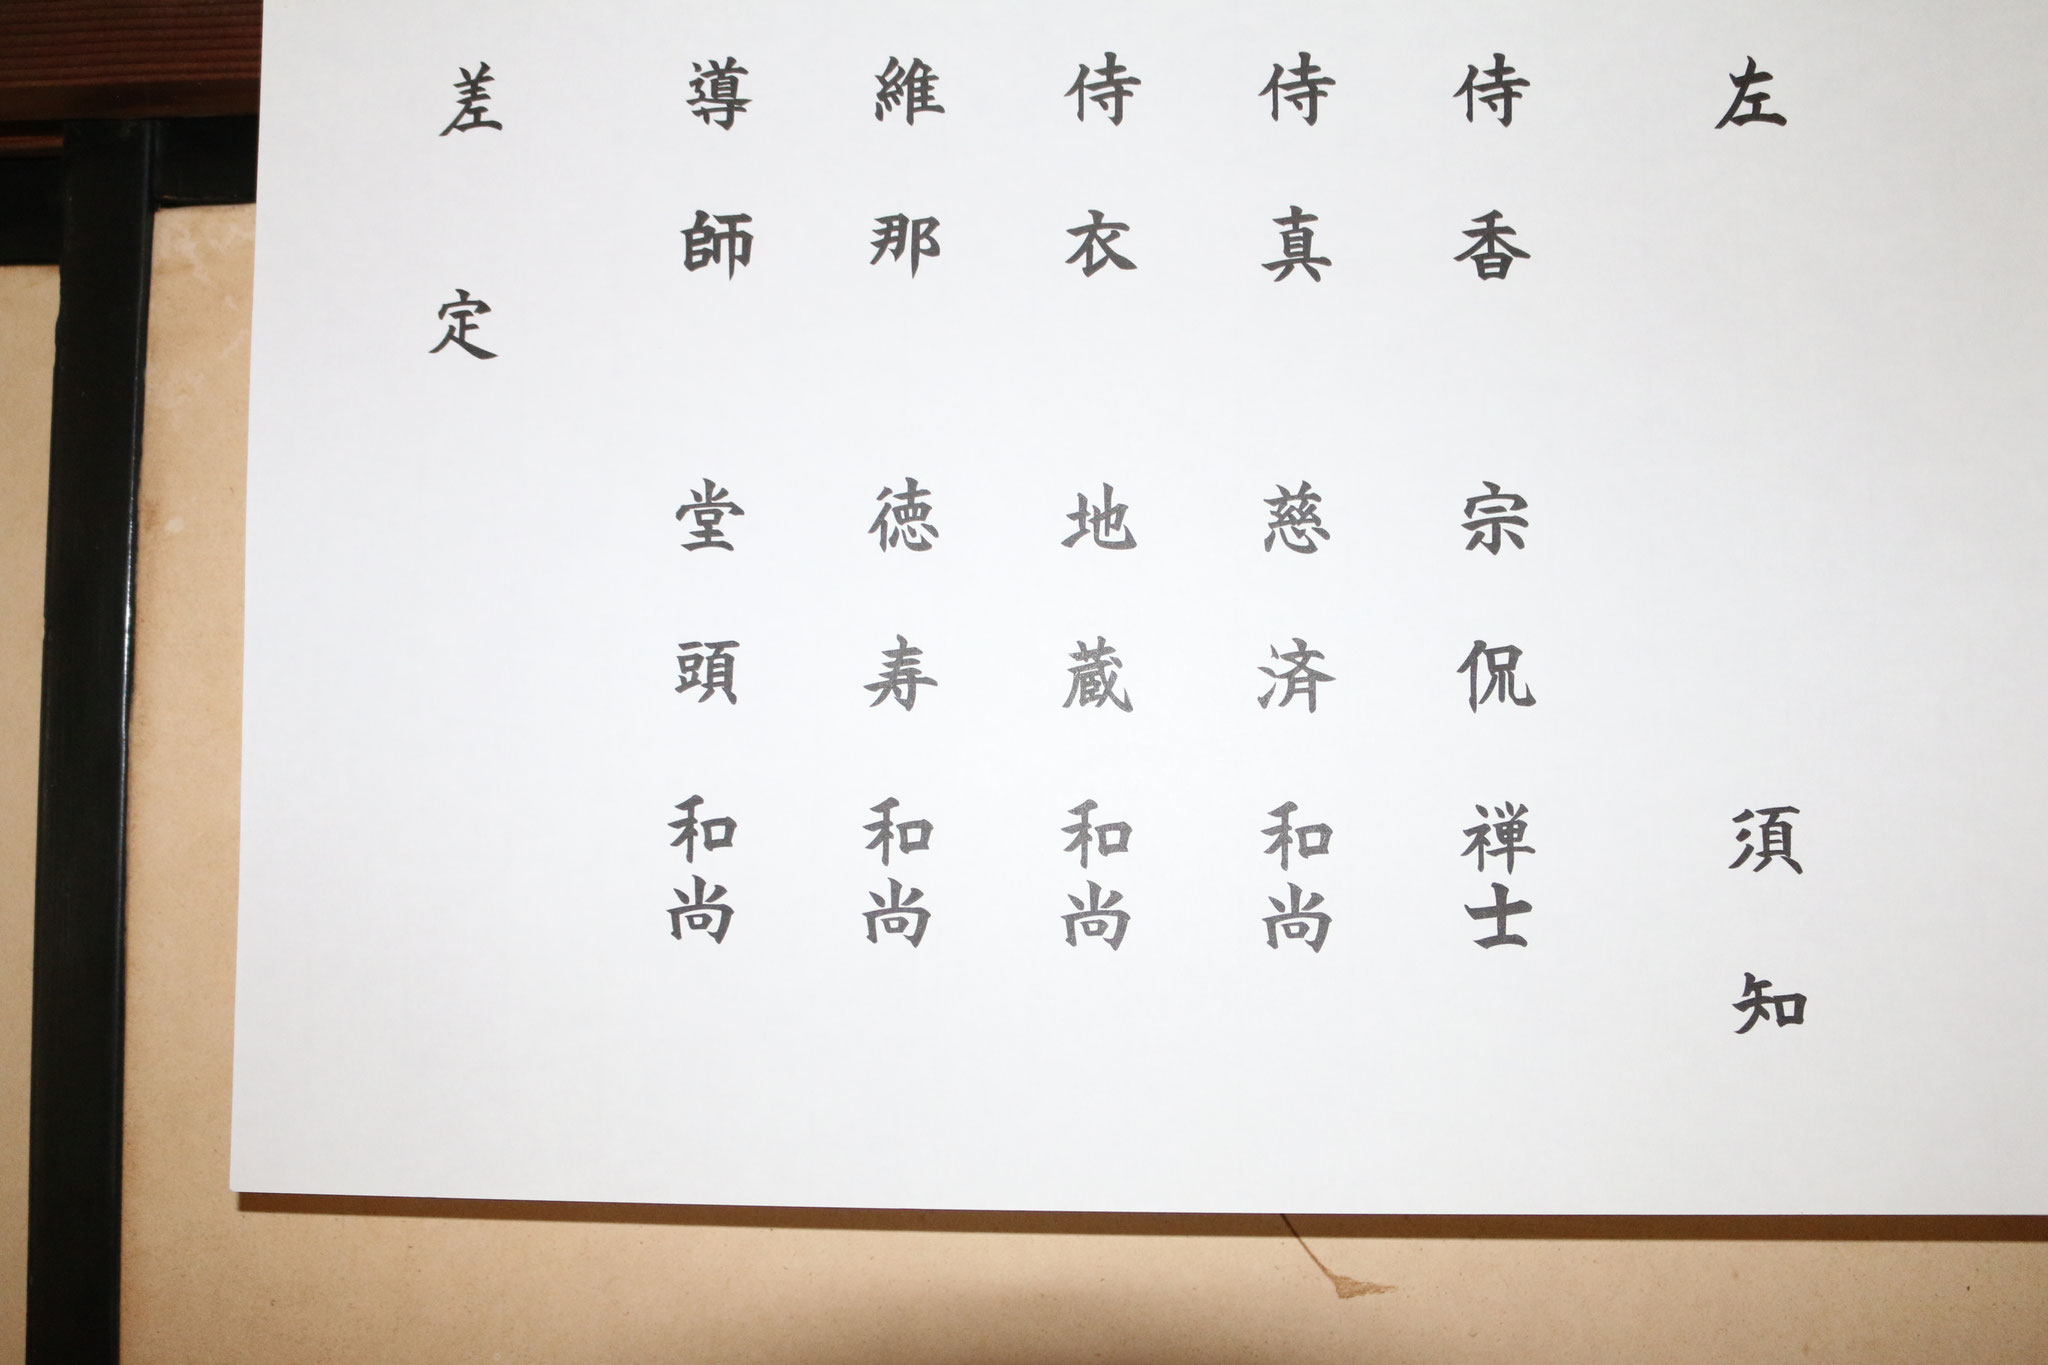 左 須知
侍香 宗侃禅士
侍真 慈済和尚
侍衣 地蔵和尚
維那 徳寿和尚
導師 堂頭和尚
差定